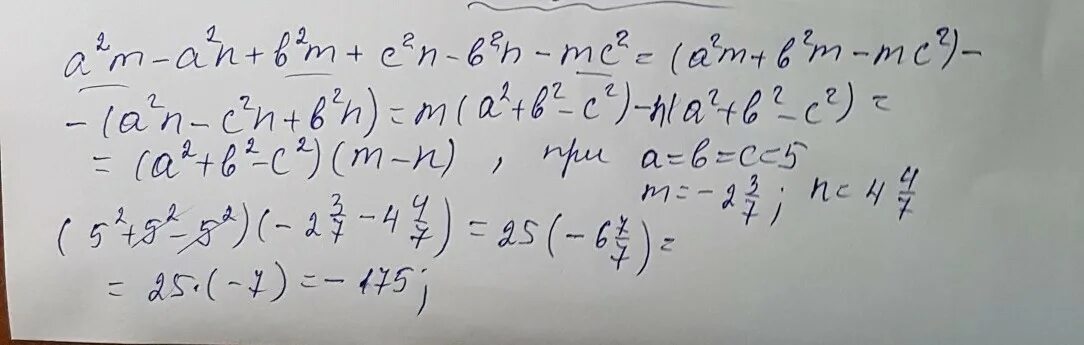 a²m - a²n + b²m + c²n - b²n - mc² = (a²m + b²m - mc²) -
- (a²n - c²n + b²n) = m(a² + b² - c²) - n(a² + b² - c²) =
= (a² + b² - c²)(m - n) , при a = b = c = 5
m = -2 3/7 ; n = 4 4/7
(5² + 5² - 5²)(-2 3/7 - 4 4/7) = 25(-6 7/7) =
= 25·(-7) = -175;